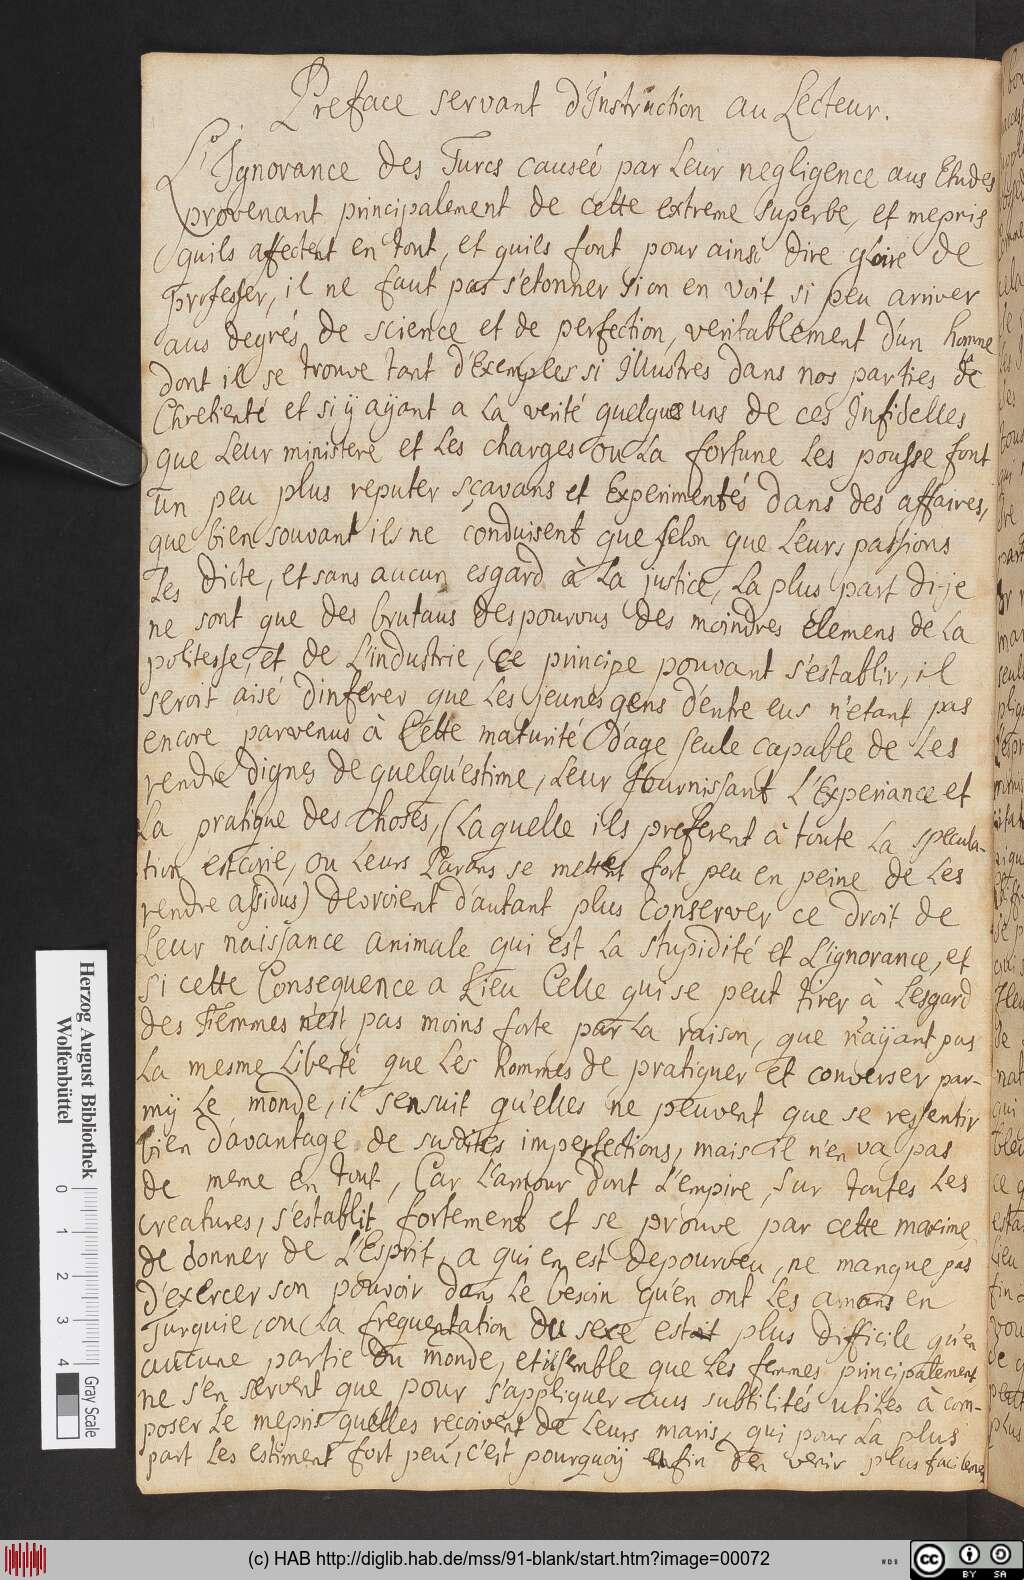 Preface servant d'Instruction au Lecteur.
L'Ignorance des Turcs causeé par leur negligence aus Etudes
provenant principalement de cette extreme superbe, et mepris
quils affectent en tout, et quils font pour ainsi dire gloire de
professer, il ne faut pas s'etonner si on en voit si peu arriver
aus degrés de science et de perfection, veritablement d'un homme
dont il se trouve tant d'Exemples si Illustres dans nos parties de la
Chretienté et si ÿ aÿant a la verité quelques uns de ces Infidelles
que leur ministere et les charges ou la fortune les pousse font
un peu plus reputer sçavans et Experimentés dans des affaires,
que bien souvant ils ne conduisent que selon que leurs passions
les dicte, et sans aucun esgard à la justice, la plus part di-je
ne sont que des brutaus despourvous des moindres élemens de la
politesse, et de l'industrie, ce principe pouvant s'establir, il
seroit aisé d'inferer que les jeunes gens d'entre eus n'etant pas
encore parvenus à Cette maturité d'age seule capable de les
rendre dignes de quelqu'estime, leur fournissant l'Experiance et
la pratique des choses, (laquelle ils preferent à toute la specula-
tion estcorie, ou leurs Parans se mettent fort peu en peine de les
rendre assidus) devroient d'autant plus conserver ce droit de
leur naissance animale qui est la stupidité et l'ignorance, et
si cette Consequence a lieu Celle qui se peut tirer à l'esgard
des Femmes n'est pas moins forte par la raison, que n'aÿant pas
la mesme liberté que les hommes de pratiquer et converser par-
mÿ le monde, il sensuit qu'elles ne peuvent que se ressentir
bien d'avantage de susdites imperfections, mais il n'en va pas
de meme en tout, Car l'amour dont l'empire, sur toutes les
creatures, s'establit fortement et se prouve par cette maxime
de donner de l'Esprit a qui en est depourveu, ne manque pas
d'exercer son pouvoir dans le besoin qu'en ont les amans en
Turquie, ou la frequentation du sexe estoit plus difficile qu'en
aucune partie du monde, et il semble que les femmes principalement
ne s'en servent que pour s'appliquer aus subtilités utiles à com-
poser le mepris quelles recoivent de leurs maris, qui pour la plus
part les estiment fort peu, c'est pourquoÿ enfin d'en venir plus facilemet
Herzog August Bibliothek
Wolfenbüttel
0 1 2 3 4
Gray Scale
(c) HAB http://diglib.hab.de/mss/91-blank/start.htm?image=00072
WDB
cc BY SA